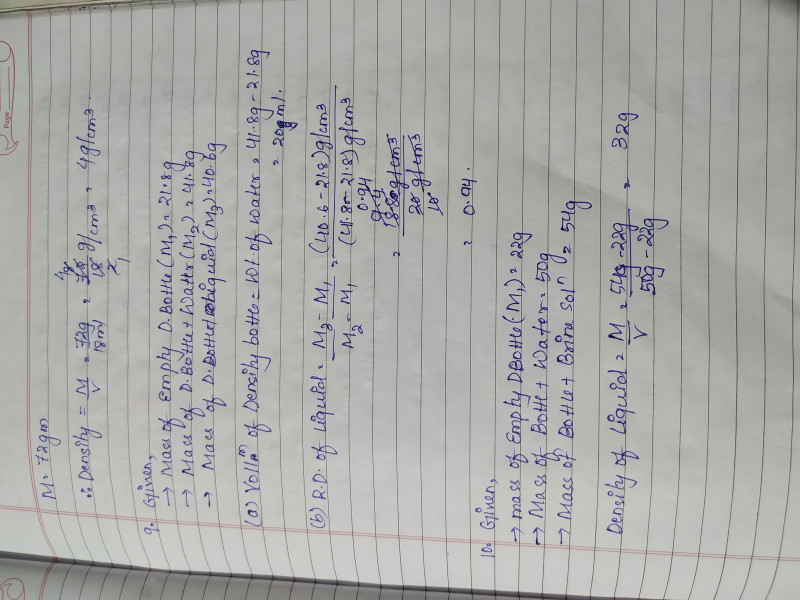 Page
M = 72gm
∴ Density = M/V = 72g/18ml = 72/18 g/cm3 = 4g/cm3.
9. Given,
→ Mass of Empty D.Bottle (M1) = 21.8g
→ Mass of D.Bottle + Water (M2) = 41.8g
→ Mass of D.Bottle + liquid (M3) = 40.6g
(a) Vol of Density bottle = Wt. of water = 41.8g - 21.8g
= 20 ml.
(b) R.D. of Liquid = M3 - M1 / M2 - M1 = (40.6 - 21.8) g/cm3 / (41.8 - 21.8) g/cm3
= 18.8 g/cm3 / 20 g/cm3
= 0.94.
10. Given,
→ mass of Empty DBottle (M1) = 22g
→ Mass of Bottle + Water = 50g
→ Mass of Bottle + Brine Soln = 54g
Density of Liquid = M/V = 54g - 22g / 50g - 22g = 32g